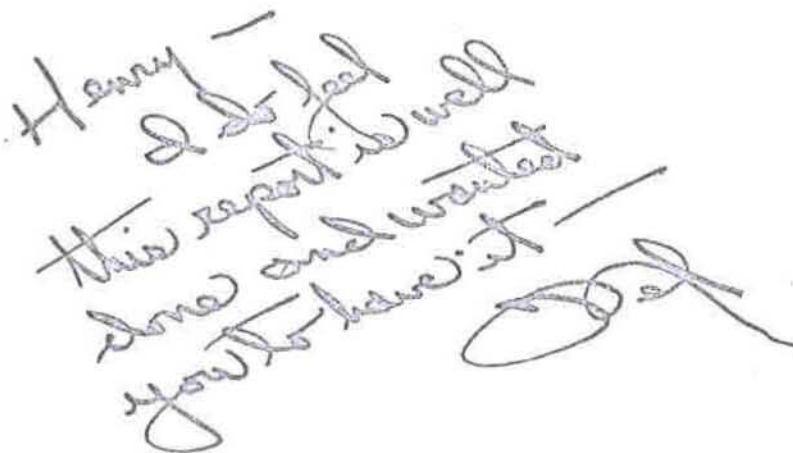 Henry —
I do feel
this report is well
done and wanted
you to have it —